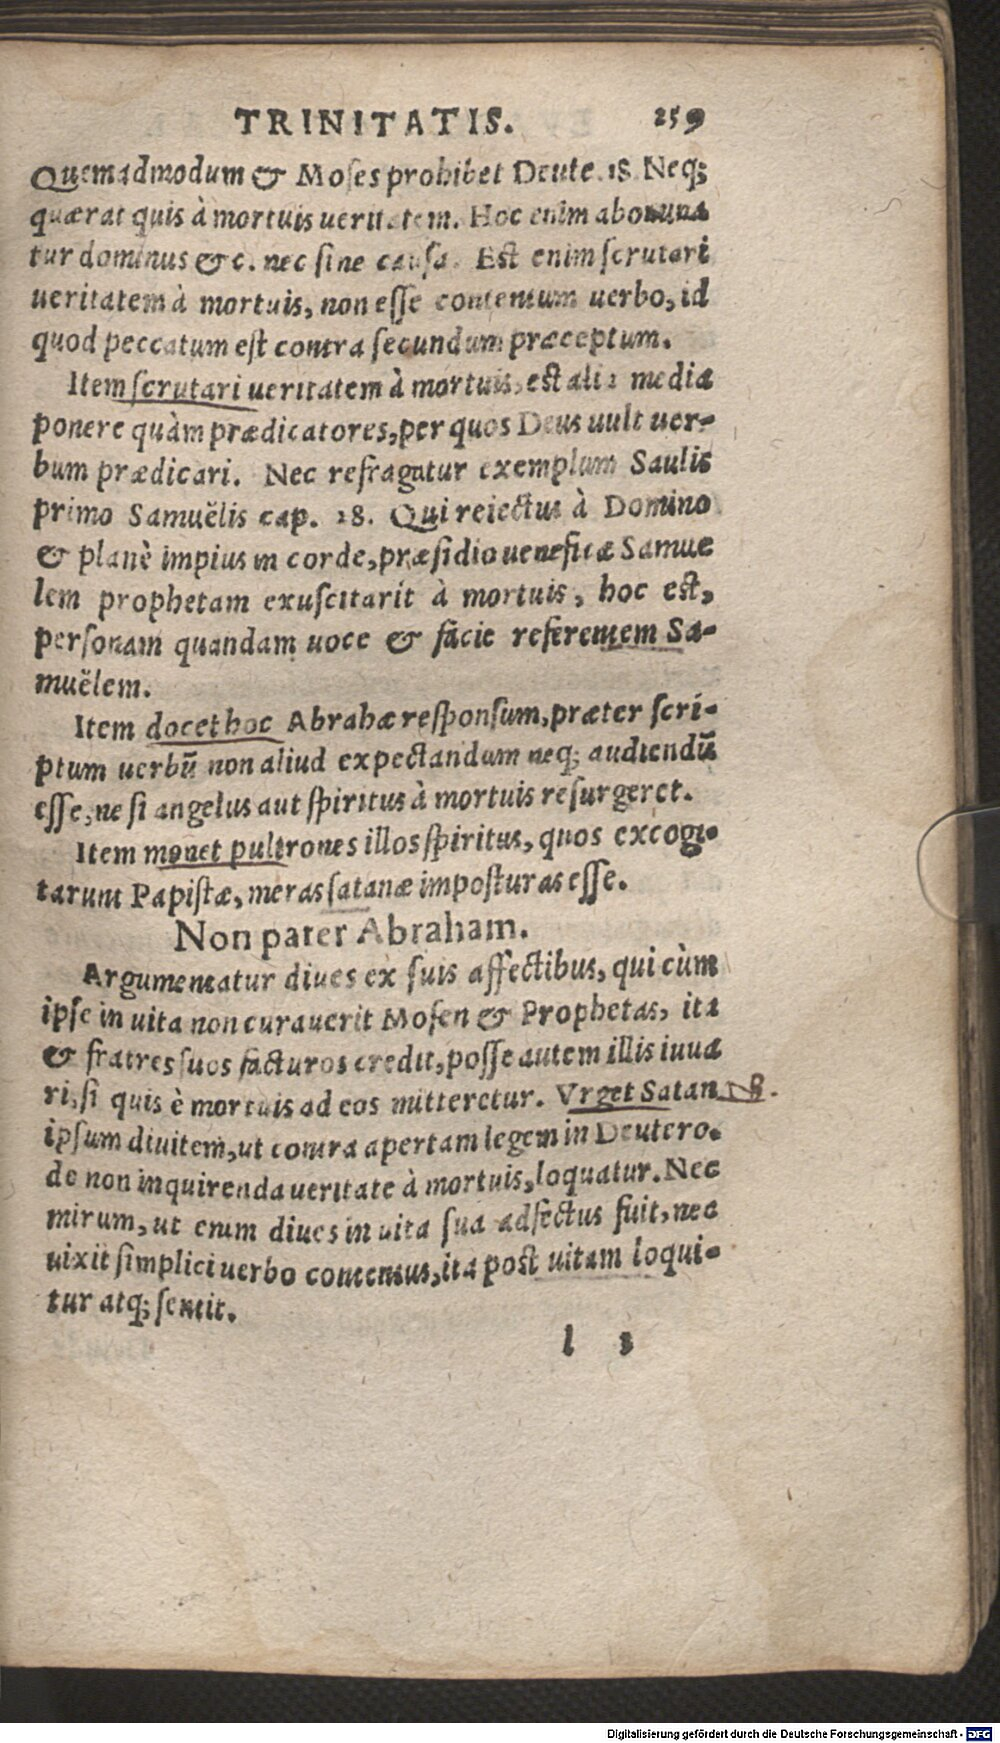 TRINITATIS. 259
Quemadmodum & Moses prohibet Deute. 18. Neq;
quærat quis à mortuis ueritatem. Hoc enim abomina
tur dominus &c. nec sine causa. Est enim scrutari
ueritatem à mortuis, non esse contentum uerbo, id
quod peccatum est contra secundum præceptum.
Item scrutari ueritatem à mortuis, est alia media
ponere quàm prædicatores, per quos Deus uult uer-
bum prædicari. Nec refragatur exemplum Saulis
primo Samuëlis cap. 28. Qui reiectus à Domino
& planè impius in corde, præsidio ueneficæ Samue
lem prophetam exuscitarit à mortuis, hoc est,
personam quandam uoce & facie referentem Sa-
muëlem.
Item docet hoc Abrahæ responsum, præter scri-
ptum uerbũ non aliud expectandum neq; audiendũ
esse, ne si angelus aut spiritus à mortuis resurgeret.
Item monet pultrones illos spiritus, quos excogi-
tarunt Papistæ, meras satanæ imposturas esse.
Non pater Abraham.
Argumentatur diues ex suis affectibus, qui cùm
ipse in uita non curauerit Mosen & Prophetas, ita
& fratres suos facturos credit, posse autem illis iuua
ri, si quis è mortuis ad eos mitteretur. Vrget Satan
ipsum diuitem, ut contra apertam legem in Deutero.
de non inquirenda ueritate à mortuis, loquatur. Nec
mirum, ut enim diues in uita sua adfectus fuit, nec
uixit simplici uerbo contentus, ita post uitam loqui-
tur atq; sentit.
l 3
Digitalisierung gefördert durch die Deutsche Forschungsgemeinschaft - DFG